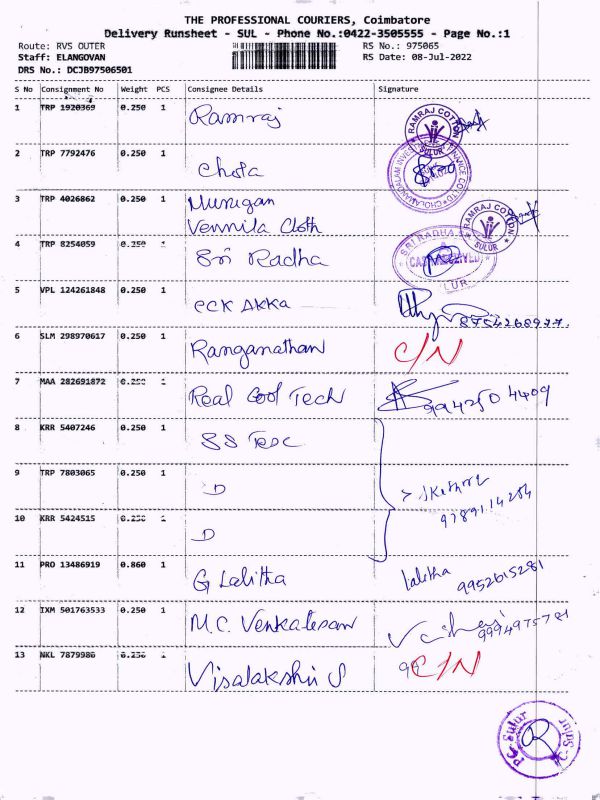 THE PROFESSIONAL COURIERS, Coimbatore
Delivery Runsheet - SUL - Phone No.:0422-3505555 - Page No.:1
Route: RVS OUTER RS No.: 975065
Staff: ELANGOVAN RS Date: 08-Jul-2022
DRS No.: DCJB97506501
S No Consignment No Weight PCS Consignee Details Signature
1 TRP 1920369 0.250 1 Ramraj RAMRAJ COTTON SULUR
2 TRP 7792476 0.250 1 Chola
3 TRP 4026862 0.250 1 Murugan
Vennila Cloth RAMRAJ COTTON SULUR
4 TRP 8254059 0.250 1 Sri Radha SRI RADHA SULUR
5 VPL 124261848 0.250 1 ECK AKKA 8754268977.
6 SLM 298970617 0.250 1 Ranganathan C/N
7 MAA 282691872 0.250 1 Real Cool Tech 9942504409
8 KRR 5407246 0.250 1 SS Tesc
9 TRP 7803065 0.250 1 D
9789114284
10 KRR 5424515 0.250 1 D
11 PRO 13486919 0.860 1 G Lalitha Lalitha 9952615281
12 IXM 501763533 0.250 1 M.C. Venkatesan 9994975781
13 NKL 7879986 0.250 1 Visalakshi S C/N
PC Sulur